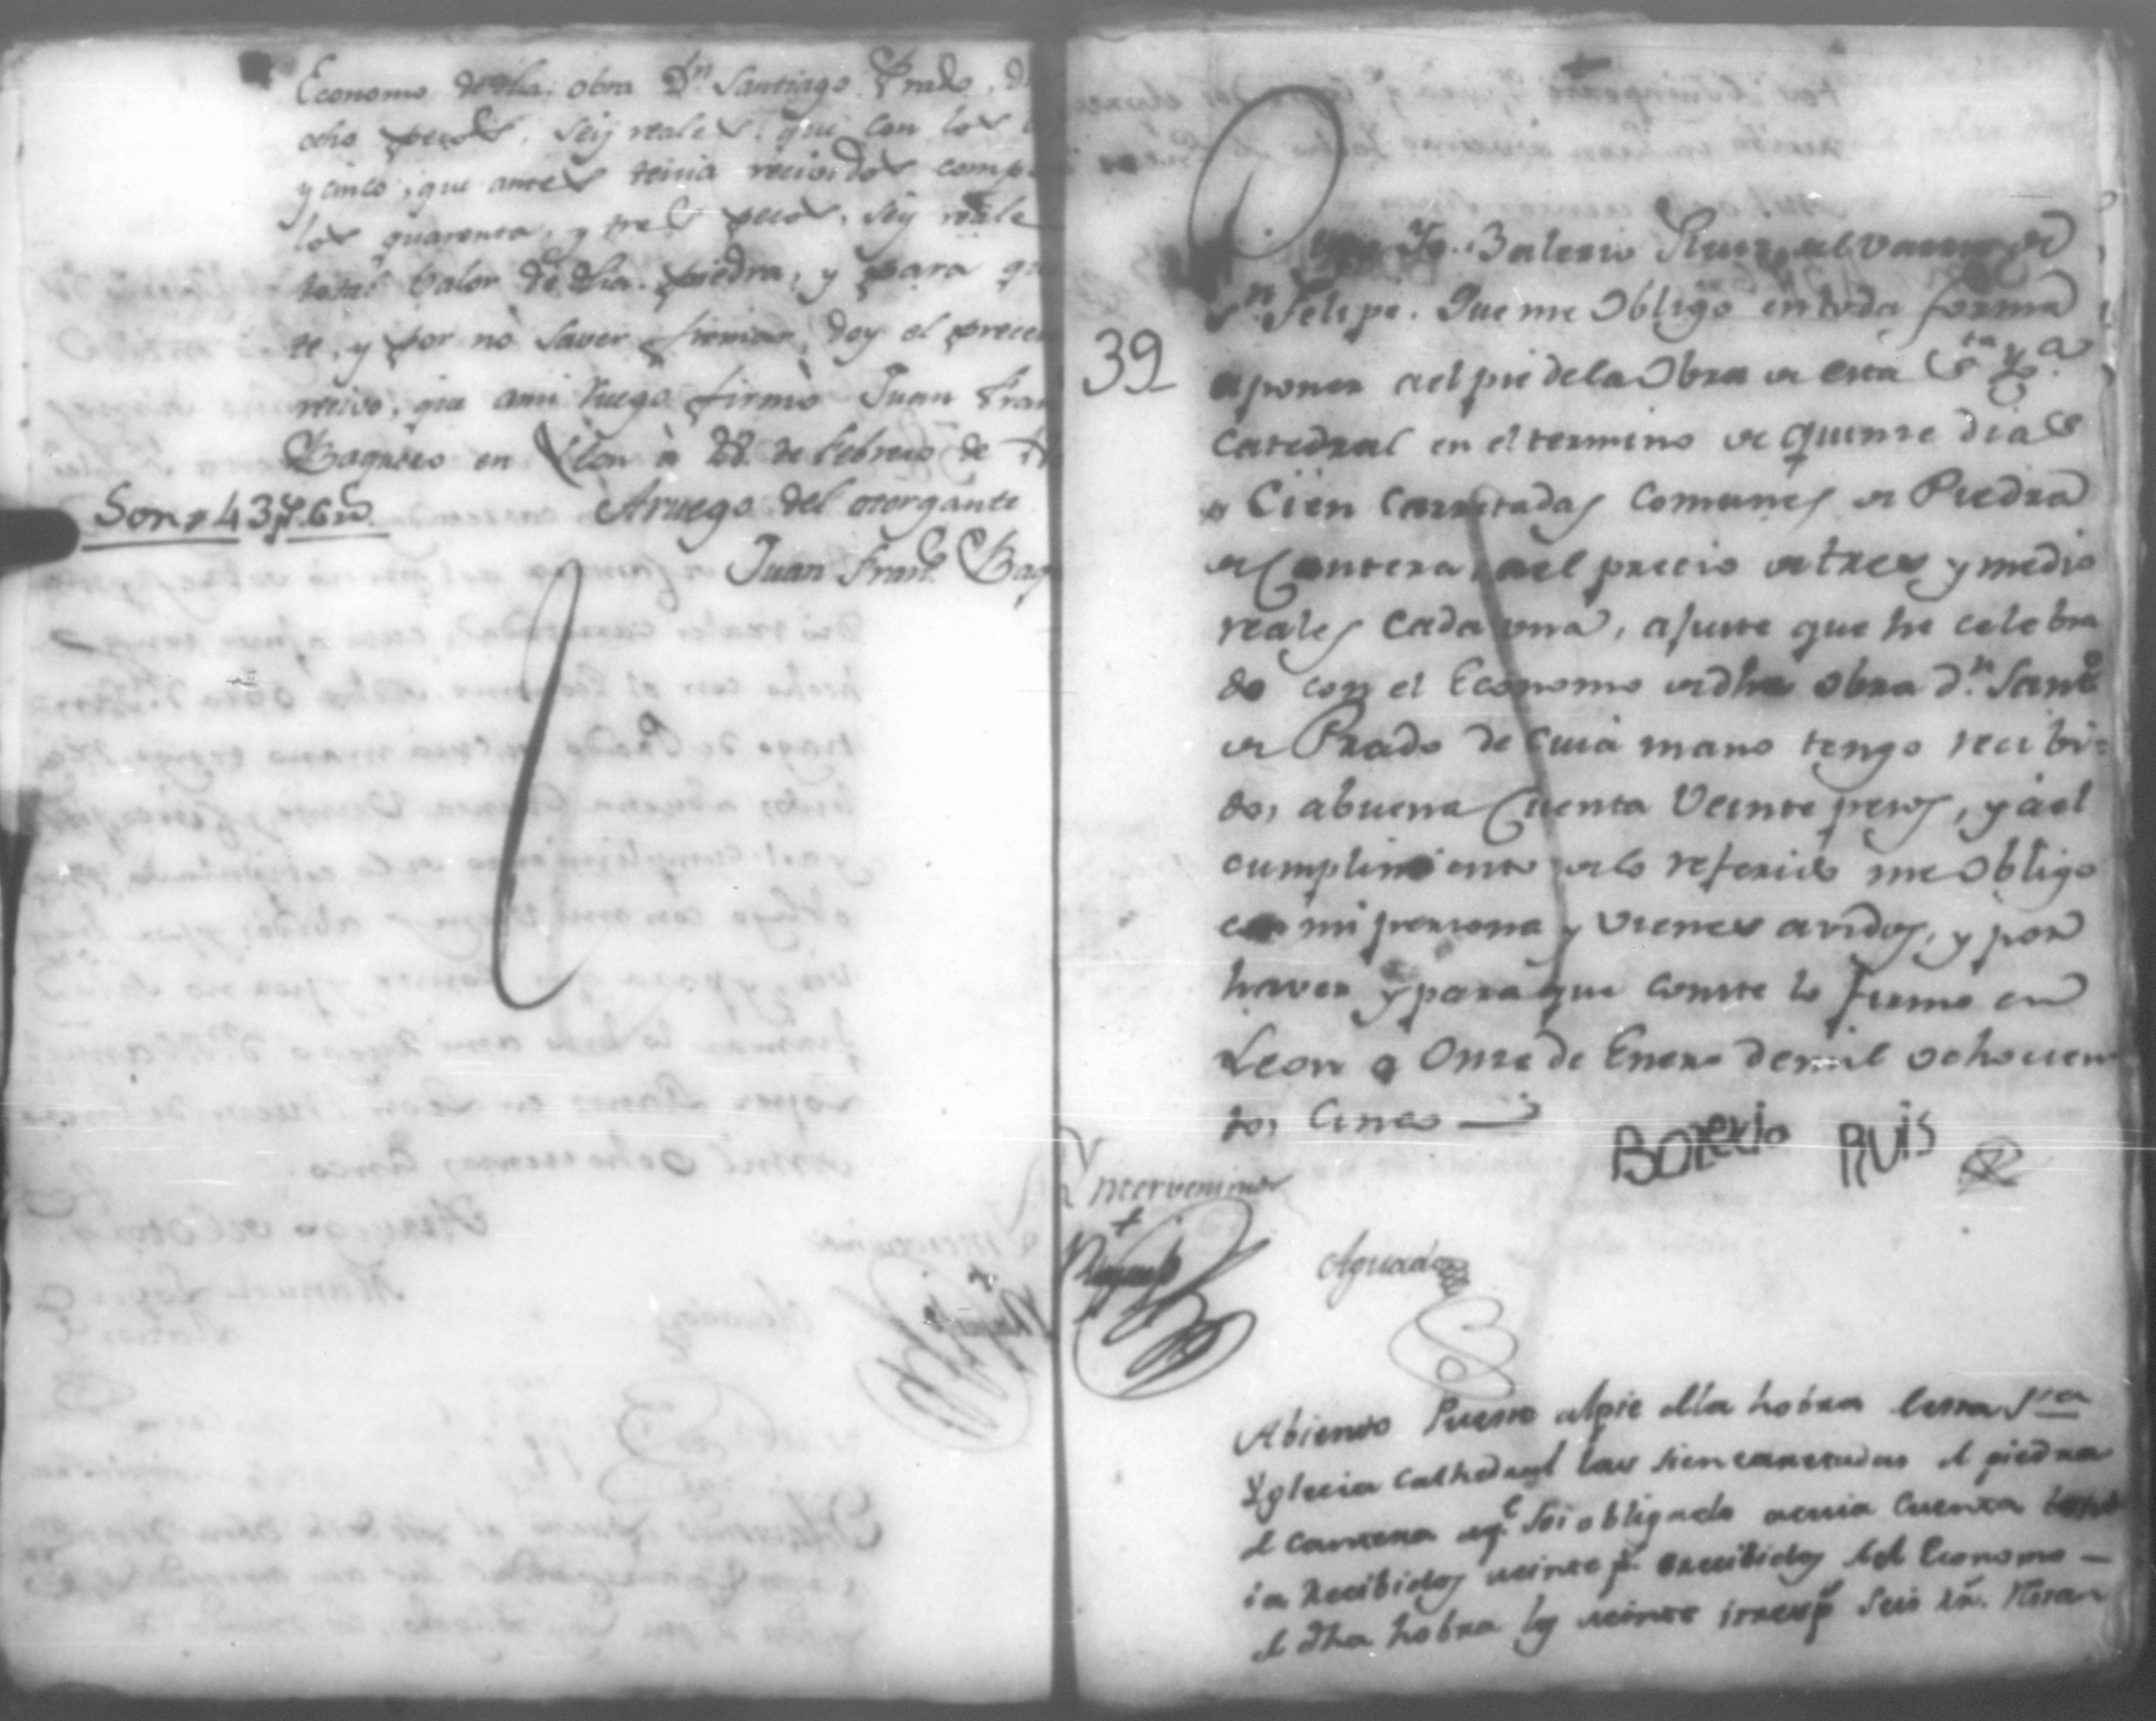 Economo de dha. obra Dn. Santiago Prado, d
ocho pesos, seiz reales. que con los
y cinco, que antes tenia recividos comp
los quarenta, y tres pesos, seiz reale
total balor de dha. piedra, y para q
te, y por no saver firmar, doy el prece
recivo, que ami ruego firmò Juan Fran
Baquero en Leon à 28 de febrero de
Son, 43p. 6rs.
Aruego del otorgante
Juan Franco. Baq
39
Yo Balerio Ruiz, del varrio de
Sn. Felipe. Que me Obligo entoda forma
aponer ael pie dela Obra de esta Sta. Ya.
Catedral en el termino de quinze dias
Cien Carretadas Comunes de Piedra
de Cantera, ael precio de tres y medio
reales Cada una, ajuste que he celebra
do con el Economo de dha obra Dn. Santo.
de Prado de cuia mano tengo recibi=
dos abuena Cuenta Veinte pesos, y ael
cumplimiento de lo referido me Obligo
con mi persona y vienes avidos, y por
haver y para que conste lo firmo en
Leon a Onze de Enero demil ochocien
tos Cinco
BOLERio RUiS
Yntervenimos
Aguado
Abiendo Puesto alpie dla hobra desta Sta
Yglecia Cathedral las sien carretadas d piedra
d cantera aqe. soi obligado acuia Cuenta
ia Recibidos veinte ps. erecibidos del Economo
d dha hobra los veinte itresps. seis rs.